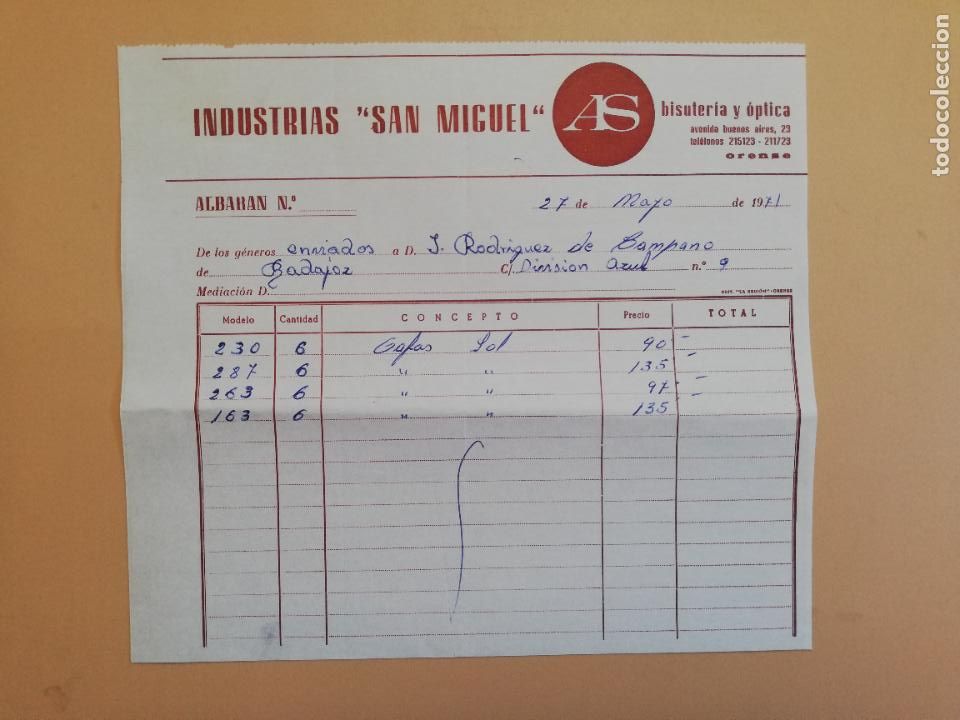 INDUSTRIAS "SAN MIGUEL"
AS
bisutería y óptica
avenida buenos aires, 23
teléfonos 215123 - 211723
orense
ALBARAN N.º
27 de Mayo de 1971
De los géneros enviados a D. J. Rodriguez de Campano
de Badajoz C/ Division Azul n.º 9
Mediación D.
EDIT. "LA REGIÓN" - ORENSE
Modelo Cantidad CONCEPTO Precio TOTAL
230 6 Gafas Sol 90 -
287 6 " " 135 -
263 6 " " 97 -
163 6 " " 135 -
todocoleccion
todocoleccion